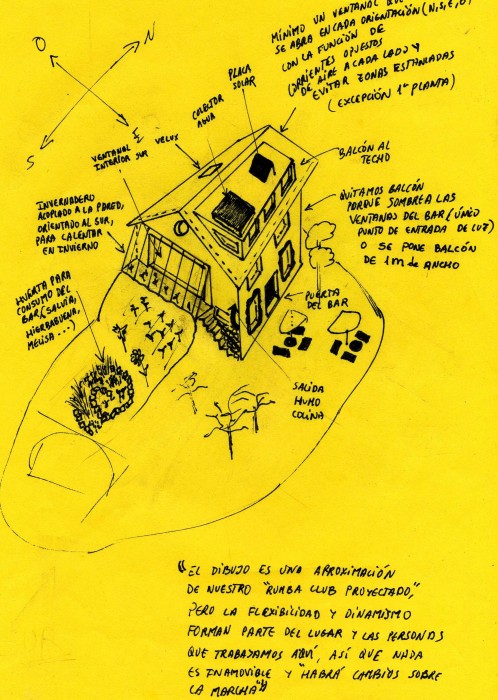 MÍNIMO UN VENTANAL QUE
SE ABRA EN CADA ORIENTACIÓN (N,S,E,O)
CON LA FUNCIÓN DE
CORRIENTES OPUESTOS
DE AIRE A CADA LADO Y
EVITAR ZONAS ESTANCADAS
(EXCEPCIÓN 1ª PLANTA)
O
N
S
E
PLACA
SOLAR
COLECTOR
AGUA
VELUX
VENTANAL
INTERIOR SUR
BALCÓN AL
TECHO
INVERNADERO
ACOPLADO A LA PARED,
ORIENTADO AL SUR,
PARA CALENTAR
EN INVIERNO
QUITAMOS BALCÓN
PORQUE SOMBREA LAS
VENTANAS DEL BAR (ÚNICO
PUNTO DE ENTRADA DE LUZ)
O SE PONE BALCÓN
DE 1m DE ANCHO
HUERTA PARA
CONSUMO DEL
BAR (SALVIA,
HIERBABUENA,
MELISA...)
PUERTA
DEL BAR
SALIDA
HUMO
COCINA
"EL DIBUJO ES UNA APROXIMACIÓN
DE NUESTRO "RUMBA CLUB PROYECTADO",
PERO LA FLEXIBILIDAD Y DINAMISMO
FORMAN PARTE DEL LUGAR Y LAS PERSONAS
QUE TRABAJAMOS AQUÍ, ASÍ QUE NADA
ES INAMOVIBLE Y "HABRÁ CAMBIOS SOBRE
LA MARCHA""